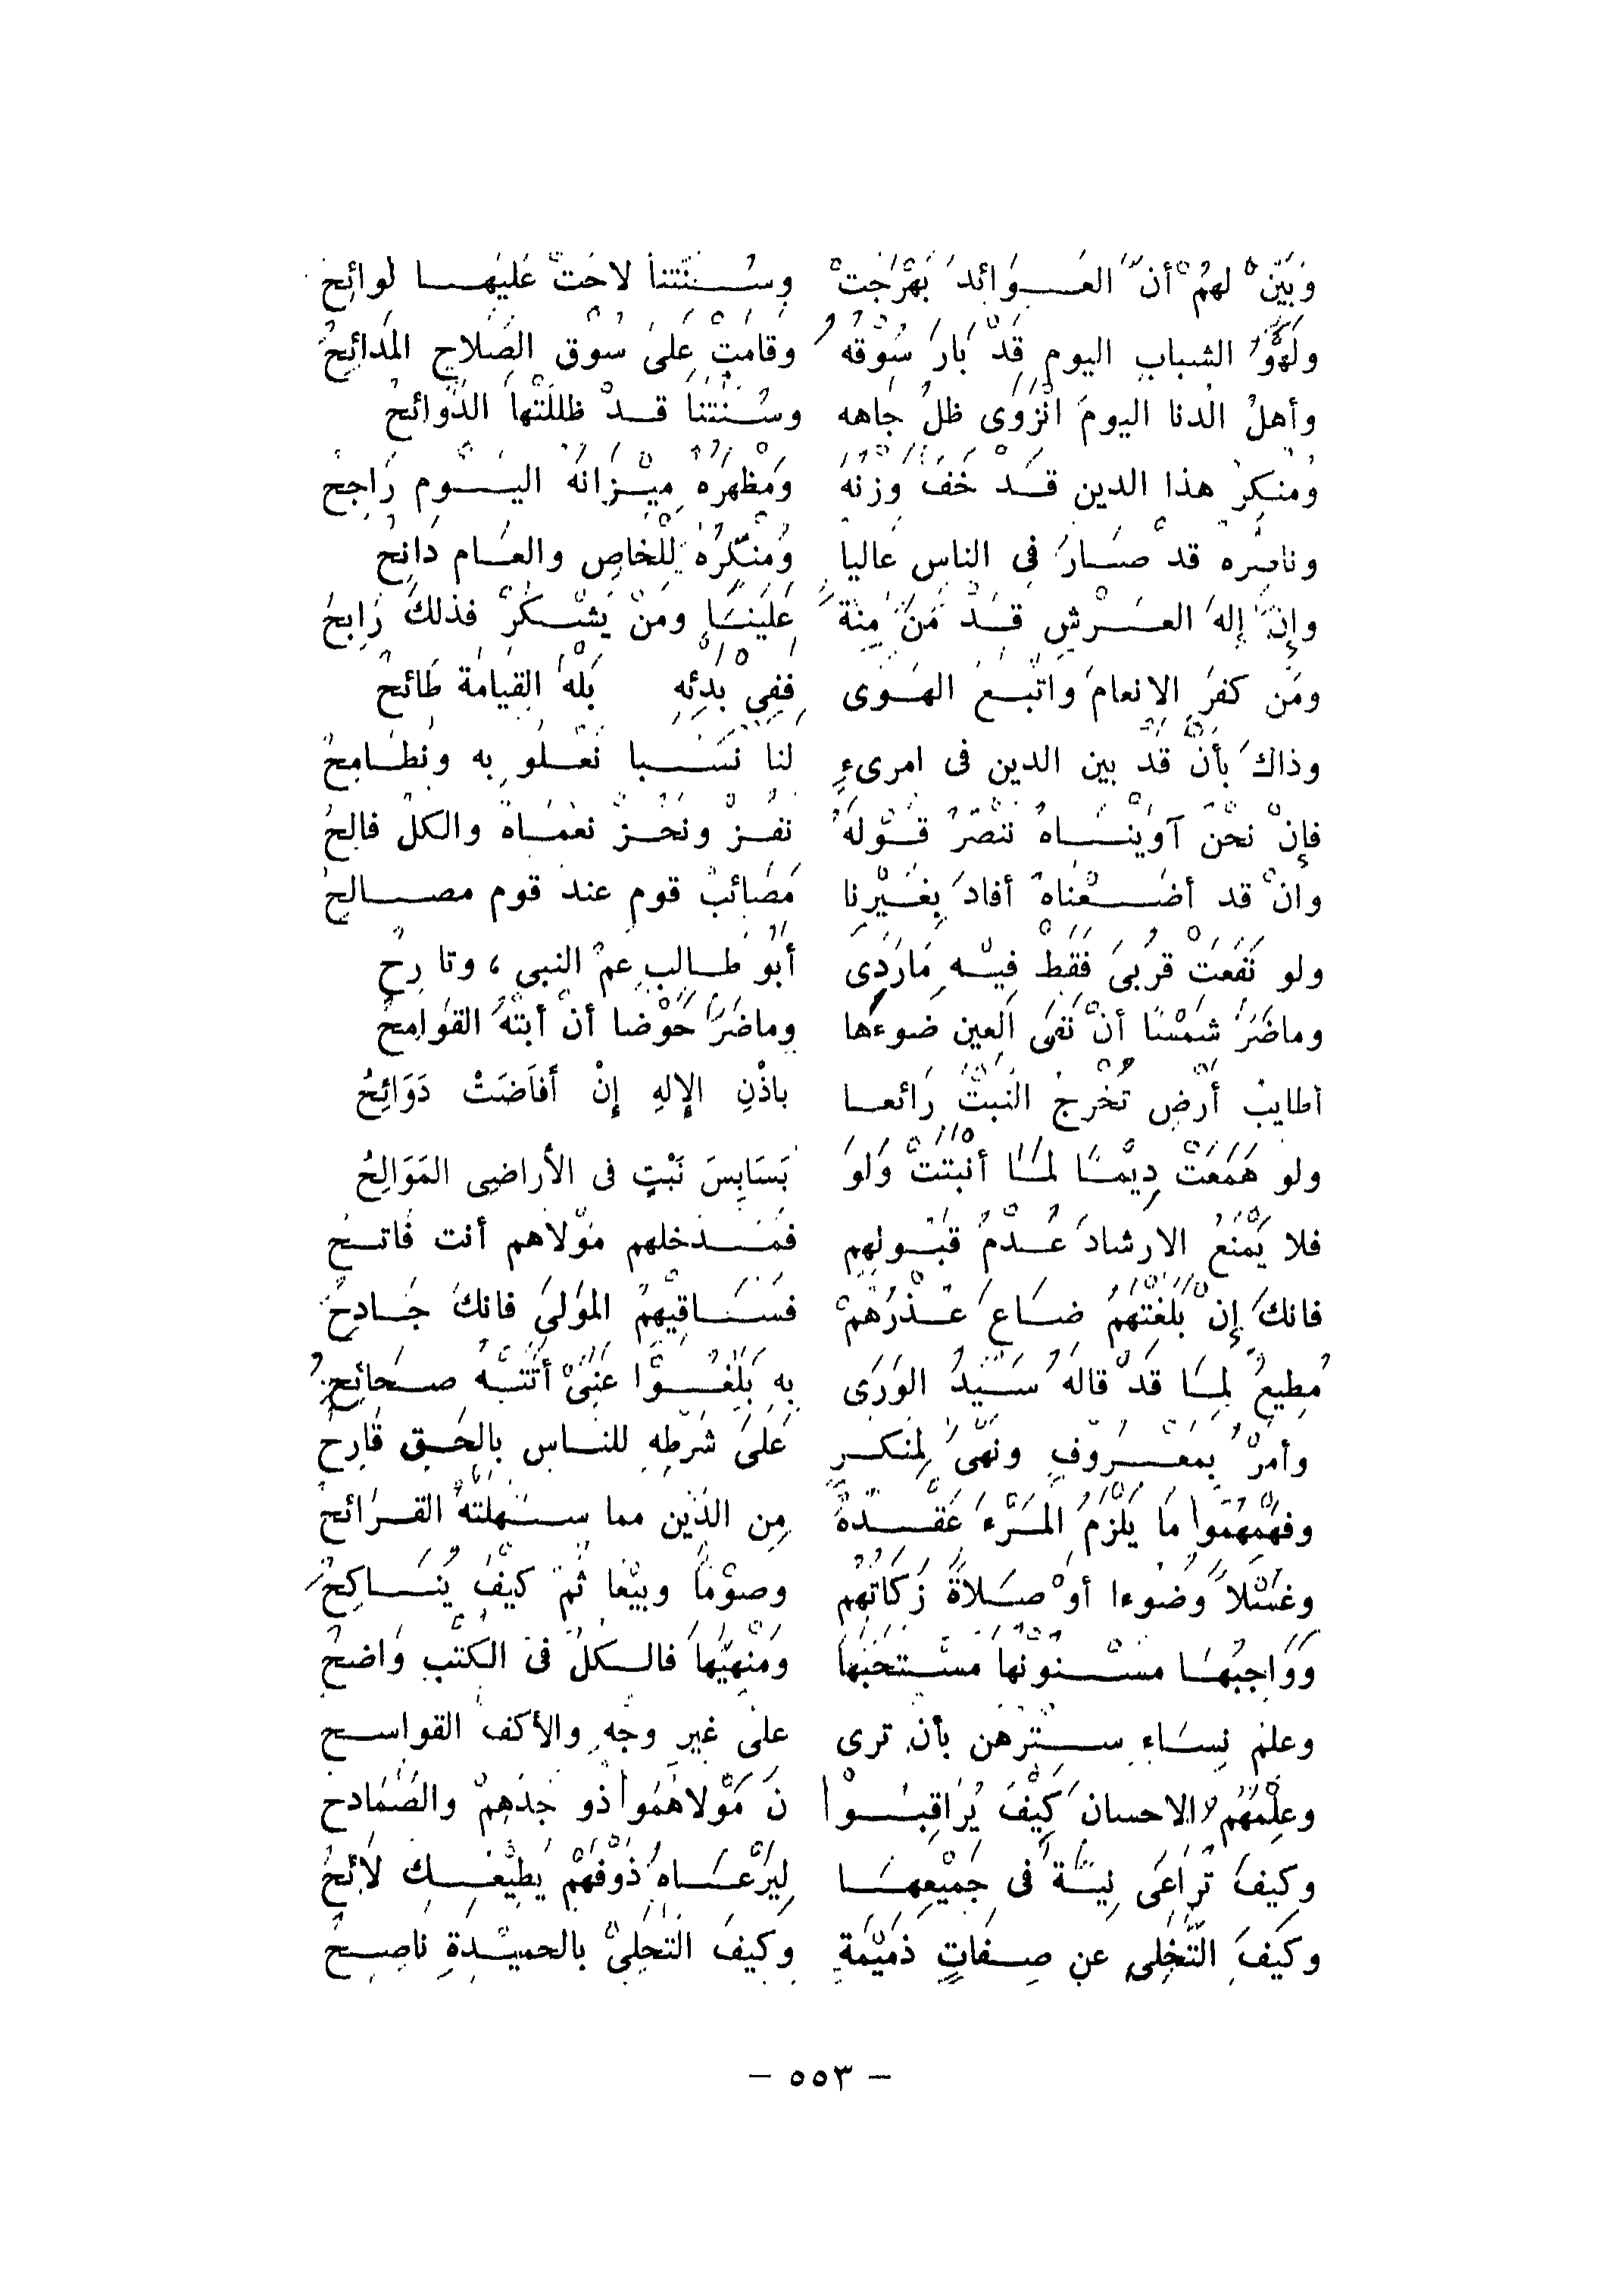 وَبَيِّنْ لهمْ أنَّ العَوَائدَ بَهْرَجَتْ وسُنَّتنا لاحَتْ عَليْها لَوائِحُ
ولَهْوُ الشباب اليوم قَدْ بَارَ سُوْقُهُ وقامَتْ عَلىَ سُوْق الصَّلاحِ المَدائِحُ
وأهلُ الدنا اليومَ انْزَوَى ظلُ جَاهه وسُنَّتُنا قدْ ظللَتْها الدَّوَائحُ
ومُنكِرُ هذا الدين قَدْ خَفَّ وَزْنُهُ وَمُظْهِرُهُ مِيْزَانُهُ اليَوْم رَاجِحُ
وناصِرُه قد صَارَ فى الناس عَاليا وَمُنْكِرُهُ لِلْخاصِ والعَام دَانِحُ
وإنَّ إلهَ العَرْشِ قَدْ مَنَّ مِنَّةً عَلَيْنَا ومَنْ يَشْكُرْ فذلكَ رَابِحُ
ومَن كفَرَ الانعامَ واتَّبعَ الهَوَى فَفِي بَدْئِهِ بَلْهَ القِيامَة طَائحُ
وذاكَ بأنْ قَدْ بين الدين فى امرىءٍ لنا نَسَبا نَعْلُو به ونُطَامِحُ
فإنْ نَحْنُ آوَيْنَاهُ نَنْصُرُ قَوْلَهُ نَفُزْ ونَحُزْ نعْمَاهُ والكلُ فالِحُ
وانْ قد أضَعْناهُ أفادَ بِغَيْرِنا مَصَائبُ قوم عند قوم مصالحُ
ولو نَفَعَتْ قُرْبىَ فَقَطْ فِيْهِ مَارَدِى أبُو طَالِبٍ عمُّ النبى ، وتا رِحُ
وماضَرَّ شَمْسًا أنْ نَفَى العين ضوءَها وماضَرَّ حَوْضا أنْ أبَتْهُ القَوامحُ
أطايبُ أَرْضٍ تُخْرِجُ النَّبْتَ رَائعا باذْنِ الإلهِ إنْ أَفَاضَتْ دَوَائِحُ
ولو هَمَعَتْ دِيْمًا لمَا أنْبَتَتْ وَلَوْ بَسَابِسَ نَبْتٍ فى الأراضِى المَوَالِحُ
فلا يَمْنَعُ الارشادَ عُدْمُ قَبُولِهِم فمَدخلهم مَوْلاهم أنت فَاتحُ
فانكَ إِنْ بَلَّغْتَهُمْ ضَاعَ عُذْرُهُمْ فسَاقِيْهِمُ المَوْلىَ فانكَ جَادِحُ
مُطِيعُ لِمَا قَدْ قالَهُ سَيِّدُ الوَرَى بِهِ بَلِّغُوْا عَنِّىْ أتَتْهُ صحَائِحُ
وأمرٌ بمَعْرُوْفٍ ونَهْىٌ لِمُنكرٍ عَلىَ شَرْطِهِ للناس بالحَق قَارِحُ
وفهِّمْهمُوا مَا يَلْزَمُ المَرْءَ عَقْدُهُ مِن الدِّيْن مما سَهَّلتْهُ القَرَائحُ
وغَسْلاً وَضُوءا أوْ صَلاةً زَكَاتَهُم وصوْمًا وبيْعا ثُمَ كيْفَ يُنَاكِحُ
وَوَاجِبُهَا مَسْنُوْنُها مُسْتَحَبُّها ومَنْهِيُّها فالكلُ فىْ الكُتْب وَاضحُ
وعلمْ نِسَاء سِتْرَهُن بأن ترى علىْ غير وجْهٍ والأكفْ القواسح
وعلِّمْهُم والاحسانَ كَيْفَ يُرَاقِبُوْا نَ مَوْلاهُمُوا ذو جدِهِمْ والصُّمَادح
وكيفَ تُراعَى نِيَّةٌ فى جَمِيْعِهَا لِيَرْعَاهُ ذوْفَهْمٍ يُطِيْعُك لَائِحُ
وكيَفَ التَّخَلِى عن صِفَاتٍ ذمَيْمَةٍ وكيفَ التَحَلِىْ بالحميْدةِ ناصحُ
– ٥٥٣ –